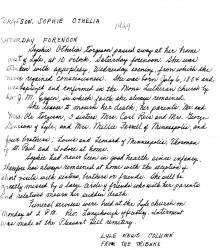 TORGFSON, SOPHIE OTHELIA 1929
SATURDAY FORENOON
Sophie Othelia Torgeson passed away at her home
out of Lyle, at 10 o'clock, Saturday forenoon. She was
stricken with apoplexy, Wednesday evening, from which she
never regained consciousness. She was born July 6, 1884 and
was baptized and confirmed in the Mona Lutheran church by
Rev. J. M. Eggen, in which faith she always remained.
She leaves to mourn her death, her parents Mr. and
Mrs. Ole Torgeson, 3 sisters Mrs. Carl Rein and Mrs. George
of Lyle, and Mrs. Nellie Ferrell of Minneapolis, and
four brothers; Louis and Edward of Minneapolis, Thomas of
St. Paul and Isidore at home.
Sophie had never been in good health since infancy,
therefore has always remained at home with the exception of
short visits with sisters, brothers or friends. She will be
greatly missed by a large circle of friends who with her parents
and relatives mourn her sudden death.
Funeral services were held at the Lyle church on
Monday at 2 P.M. Rev. officiating, interment
was made at the cemetery.
LYLE NEWS COLUMN
FROM THE TRIBUNE